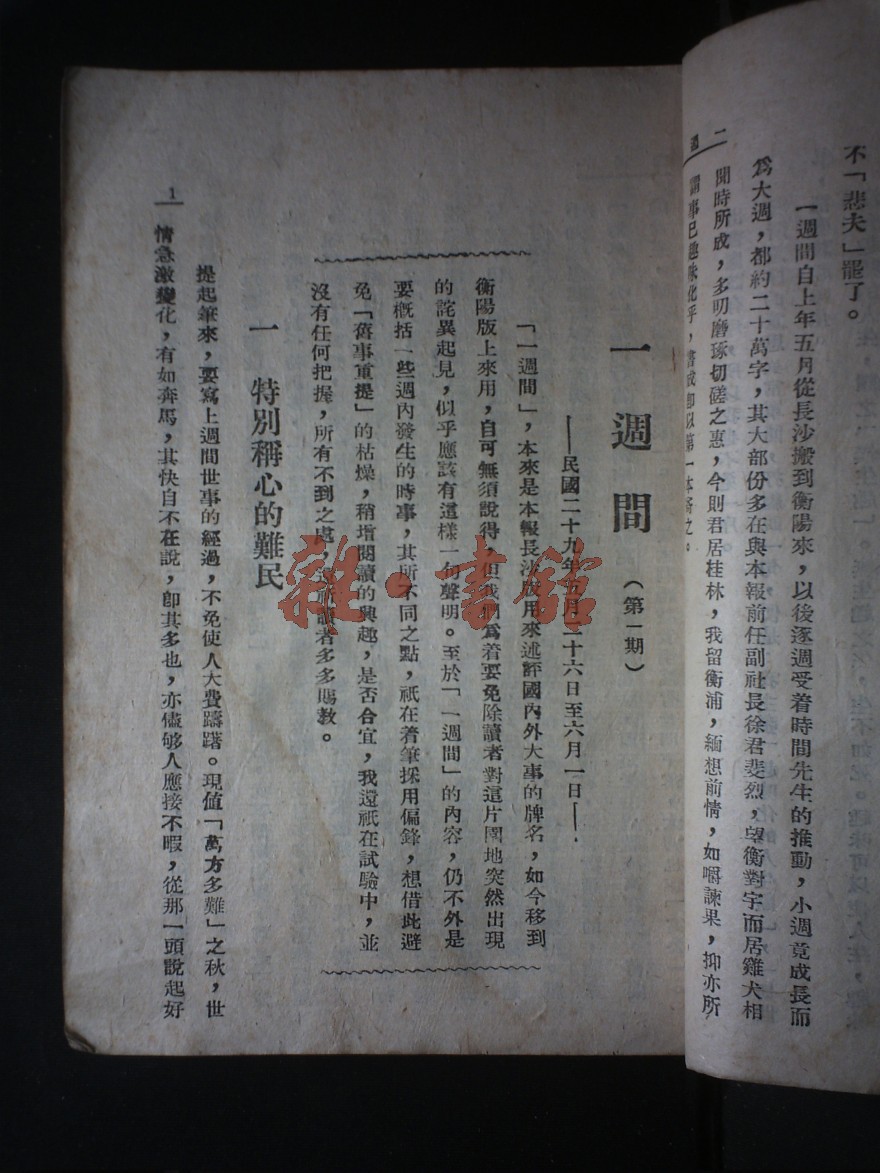 不「悲夫」罷了。
一週間自上年五月從長沙搬到衡陽來，以後逐週受着時間先生的推動，小週竟成長而
爲大週，都約二十萬字，其大部份多在與本報前任副社長徐君斐烈，望衡對宇而居雞犬相
聞時所成，多叨磨琢切磋之惠，今則君居桂林，我留衡浦，緬想前情，如嚼諫果，抑亦所
謂事已趣味化乎，書成卽以第一本寄之。
二
一週間（第一期）
——民國二十九年五月二十六日至六月一日——
「一週間」，本來是本報長沙版用來述評國內外大事的牌名，如今移到
衡陽版上來用，自可無須說得，但我們爲着要免除讀者對這片園地突然出現
的詫異起見，似乎應該有這樣一句聲明。至於「一週間」的內容，仍不外是
要概括一些週內發生的時事，其所不同之點，祇在着筆採用偏鋒，想借此避
免「舊事重提」的枯燥，稍增閱讀的興趣，是否合宜，我還祇在試驗中，並
沒有任何把握，所有不到之處，還祈讀者多多賜教。
一　特別稱心的難民
提起筆來，要寫上週間世事的經過，不免使人大費躊躇。現值「萬方多難」之秋，世
情急激變化，有如奔馬，其快自不在說，卽其多也，亦儘够人應接不暇，從那一頭說起好
1
雜·書館